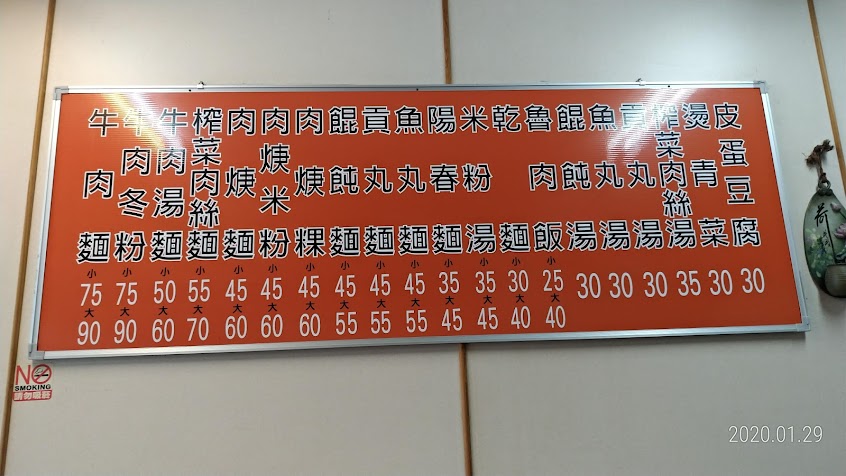 牛肉麵 小75大90
牛肉冬粉 小75大90
牛肉湯麵 小50大60
榨菜肉絲麵 小55大70
肉焿麵 小45大60
肉焿米粉 小45大60
肉焿粿 小45大60
餛飩麵 小45大55
貢丸麵 小45大55
魚丸麵 小45大55
陽春麵 小35大45
米粉湯 小35大45
乾麵 小30大40
魯肉飯 小25大40
餛飩湯 30
魚丸湯 30
貢丸湯 30
榨菜肉絲湯 35
燙青菜 30
皮蛋豆腐 30
荷
NO
SMOKING
請勿吸菸
2020.01.29